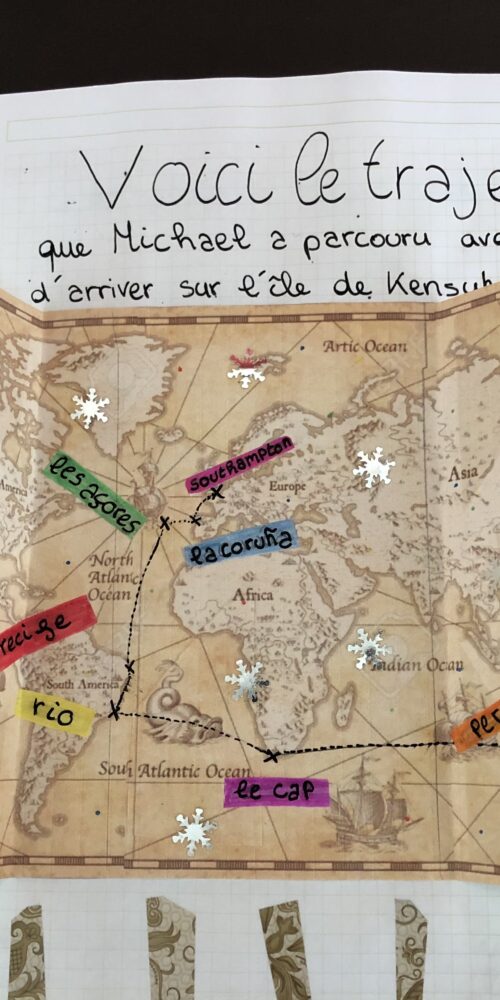 Voici le traje
que Michael a parcouru ava
d'arriver sur l'île de Kensuk
Artic Ocean
southampton
Europe
Asia
America
les açores
la coruña
North
Atlantic
Ocean
Africa
recige
South America
Indian Ocean
rio
per
South Atlantic Ocean
le cap